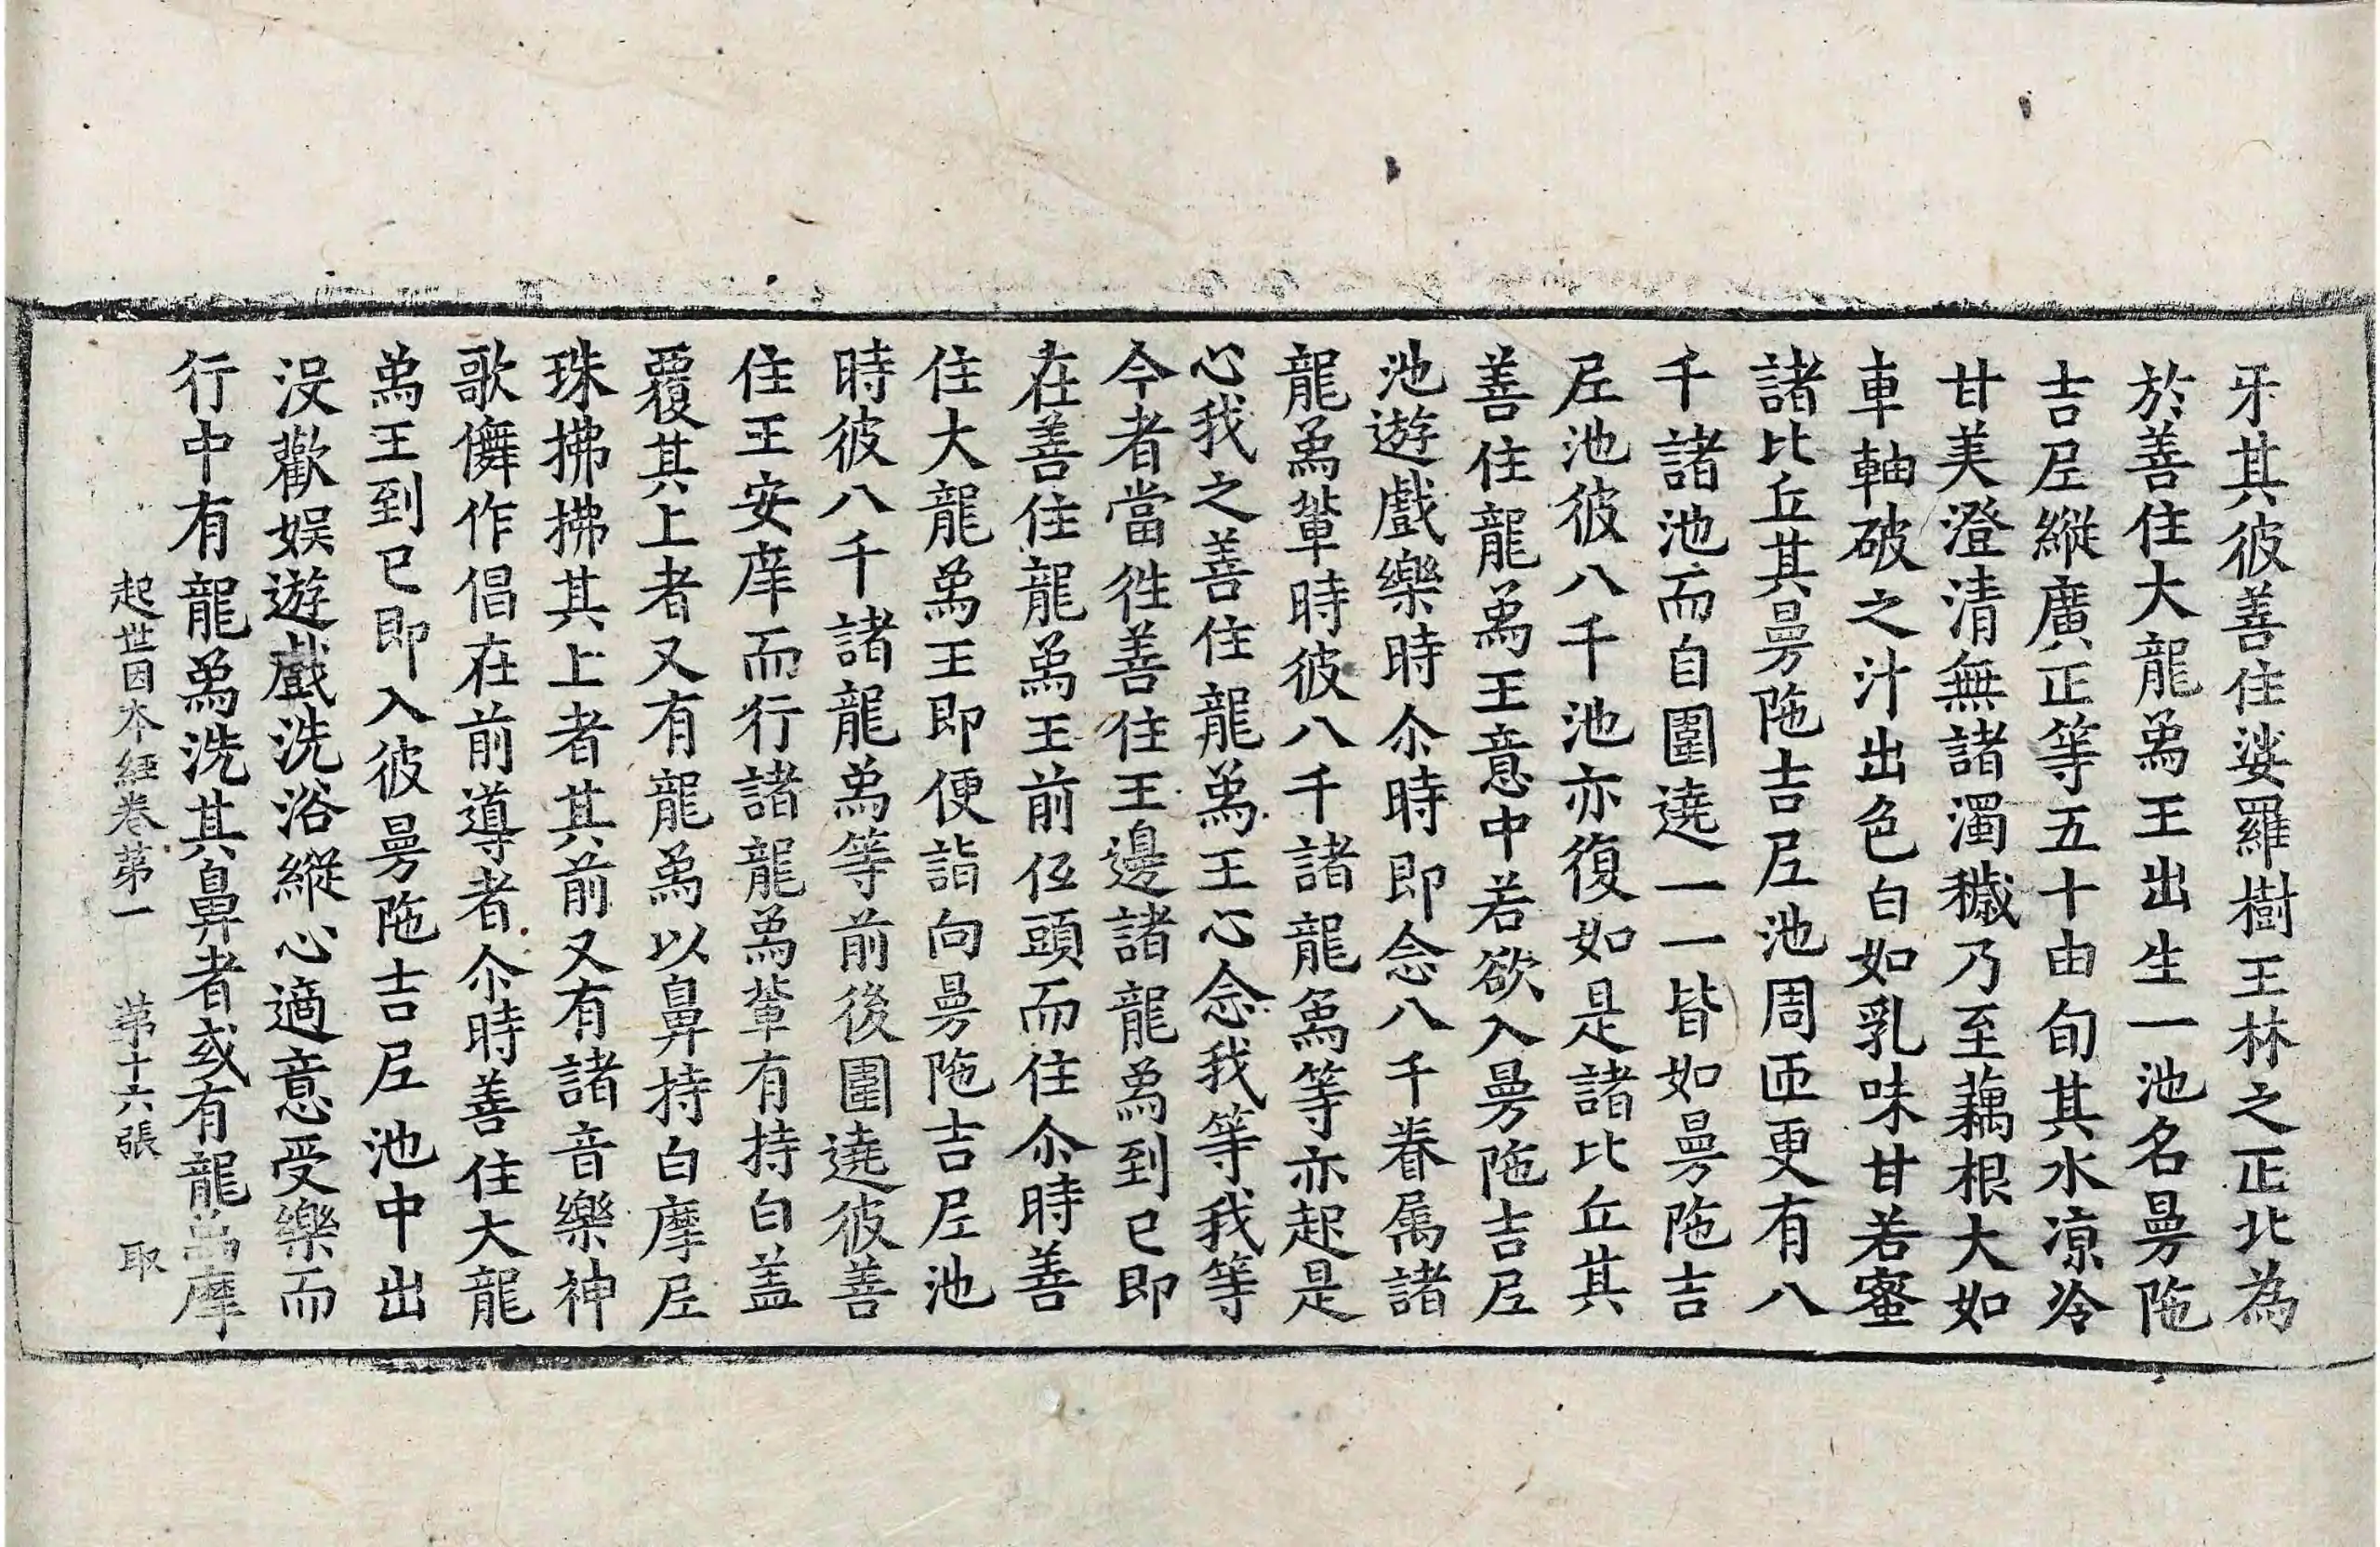 牙其彼善住娑羅樹王林之正北為
於善住大龍𤉡王出生一池名曼陁
吉𡰱縱廣正等五十由旬其水凉冷
甘美澄清無諸濁穢乃至藕根大如
車軸破之汁出色白如乳味甘若蜜
諸比丘其曼陁吉𡰱池周匝更有八
千諸池而自圍遶一一皆如曼陁吉
𡰱池彼八千池亦復如是諸比丘其
善住龍𤉡王意中若欲入曼陁吉𡰱
池遊戲樂時尒時即念八千眷属諸
龍𤉡輩時彼八千諸龍𤉡等亦起是
心我之善住龍𤉡王心念我等我等
今者當徃善住王邊諸龍𤉡到已即
在善住龍𤉡王前仾頭而住尒時善
住大龍𤉡王即便詣向曼陁吉𡰱池
時彼八千諸龍𤉡等前後圍遶彼善
住王安庠而行諸龍𤉡輩有持白盖
覆其上者又有龍𤉡以鼻持白摩𡰱
珠拂拂其上者其前又有諸音樂神
歌儛作倡在前導者尒時善住大龍
𤉡王到已即入彼曼陁吉𡰱池中出
没歡娱遊戲洗浴縱心適意受樂而
行中有龍𤉡洗其鼻者或有龍𤉡摩
起世因本經卷第一 第十六張 取